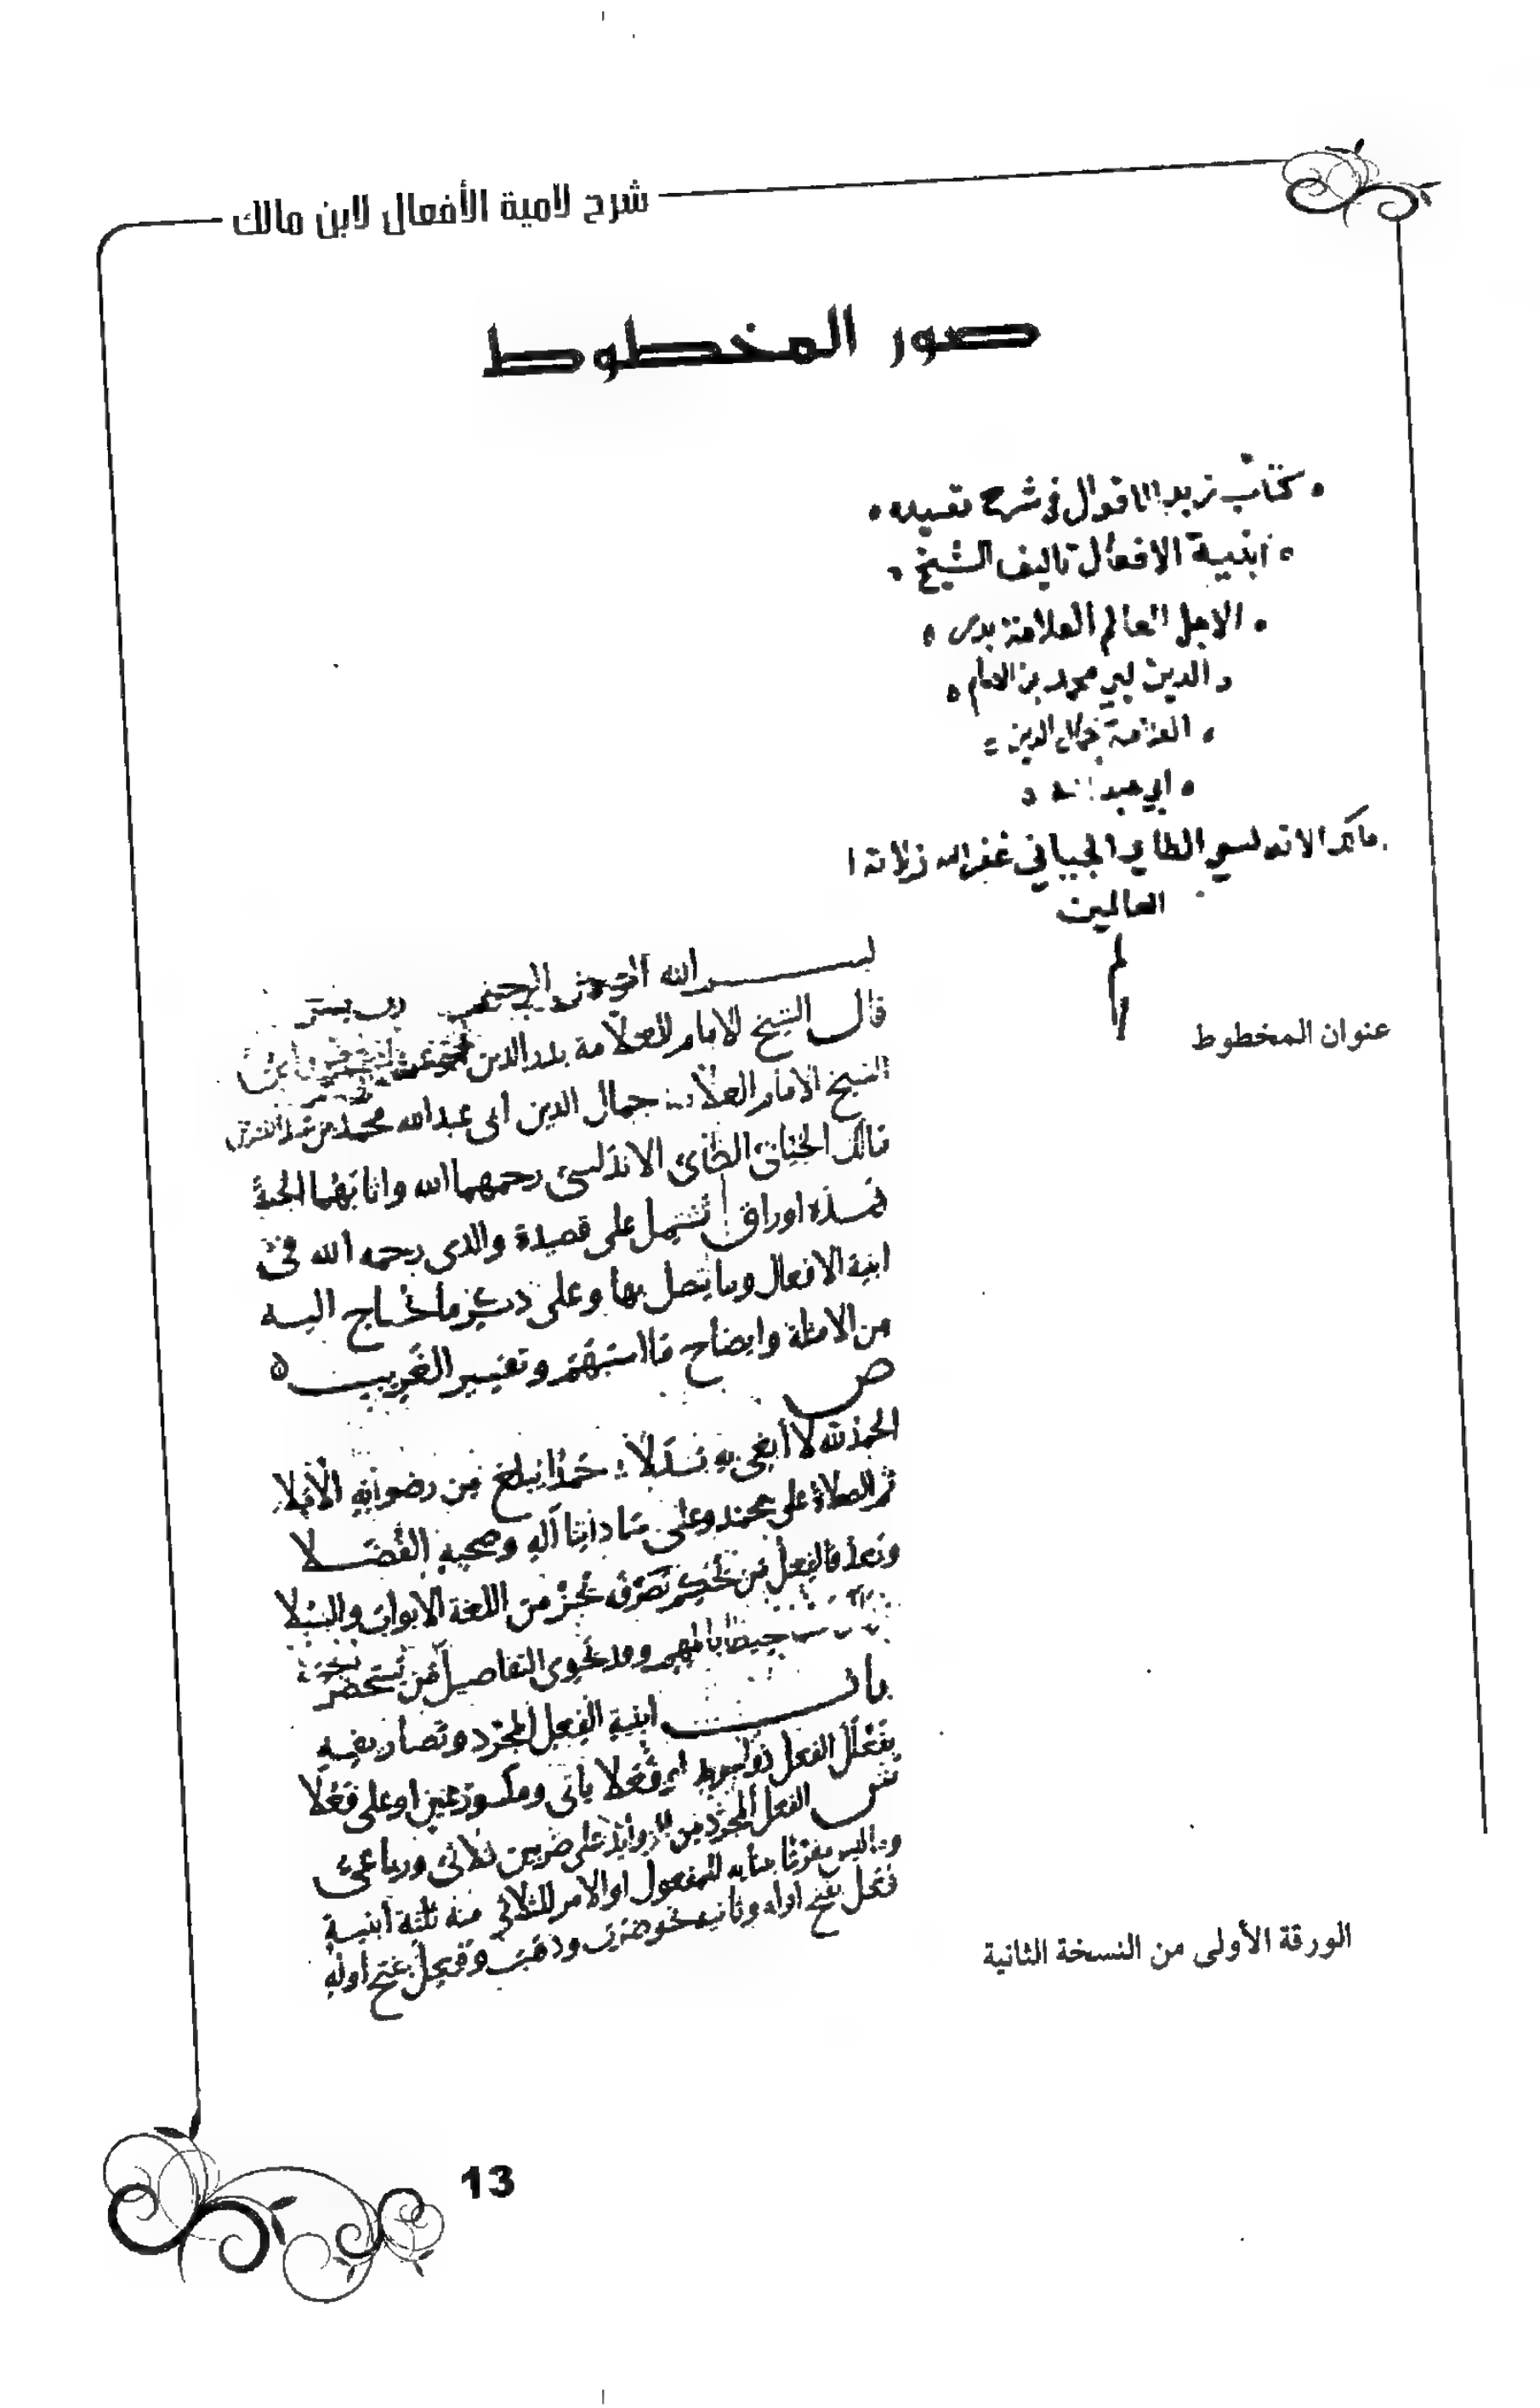 شرح لامية الأفعال لابن مالك
صور المخطوط
كتاب زبد الاقوال في شرح قصيده
ابنية الافعال تاليف الشيخ
الاجل العالم العلامة بدر
الدين ابي محمد بن الامام
العلامة جمال الدين
ابي عبد الله
مالك الاندلسي الطاي الجياني غفر الله زلاته
العالمين
عنوان المخطوط
بسم الله الرحمن الرحيم رب يسر
قال الشيخ الامام العلامة بدر الدين
الشيخ الامام العلامة جمال الدين ابى عبد الله محمد بن
مالك الجيانى الطائى الاندلسى رحمهما الله واثابهما الجنة
هذه اوراق تشتمل على قصيدة والدى رحمه الله فى
ابنية الافعال وما يتصل بها وعلى ذكر ما تحتاج اليه
من الامثلة وايضاح ما استبهم وتفسير الغريب ه
ص
الحمد لله لا أبغى به بدلا حمدا يبلغ من رضوانه الأملا
ثم الصلاة على محمد وعلى ساداتنا آله وصحبه الفضلا
وبعد فالفعل من يحكم تصرفه يحز من اللغة الابواب والسبلا
محيطا بالمهم وقد يحوى التفاصيل من يستحضر
باب ابنية الفعل المجرد وتصاريفه
بفعلل الفعل ذو التجريد او فعلا ياتى ومكسور عين او على فعلا
ش الفعل المجرد من الزوائد على ضربين ثلاثى ورباعى
للمفعول او الامر للثلاثى منه ثلثة أبنية
فعل بفتح اوله وثانيه نحو ضرب وذهب وفعل بفتح اوله
الورقة الأولى من النسخة الثانية
13